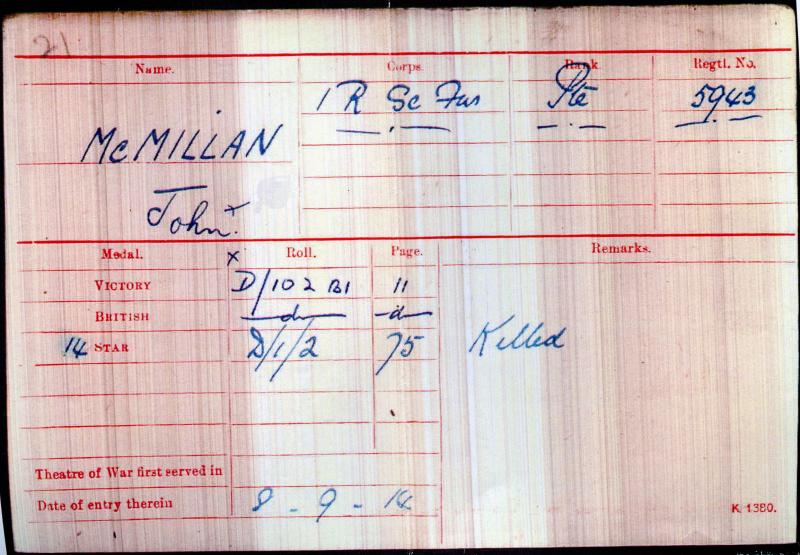 21
Name. Corps. Rank. Regtl. No.
1 R Sc Fus Pte 5943
McMILLAN
John. x
Medal. x Roll. Page. Remarks.
VICTORY D/102 B1 11
BRITISH —do— —do—
14 STAR D/1/2 75 Killed
Theatre of War first served in
Date of entry therein 8 - 9 - 14
K. 1380.